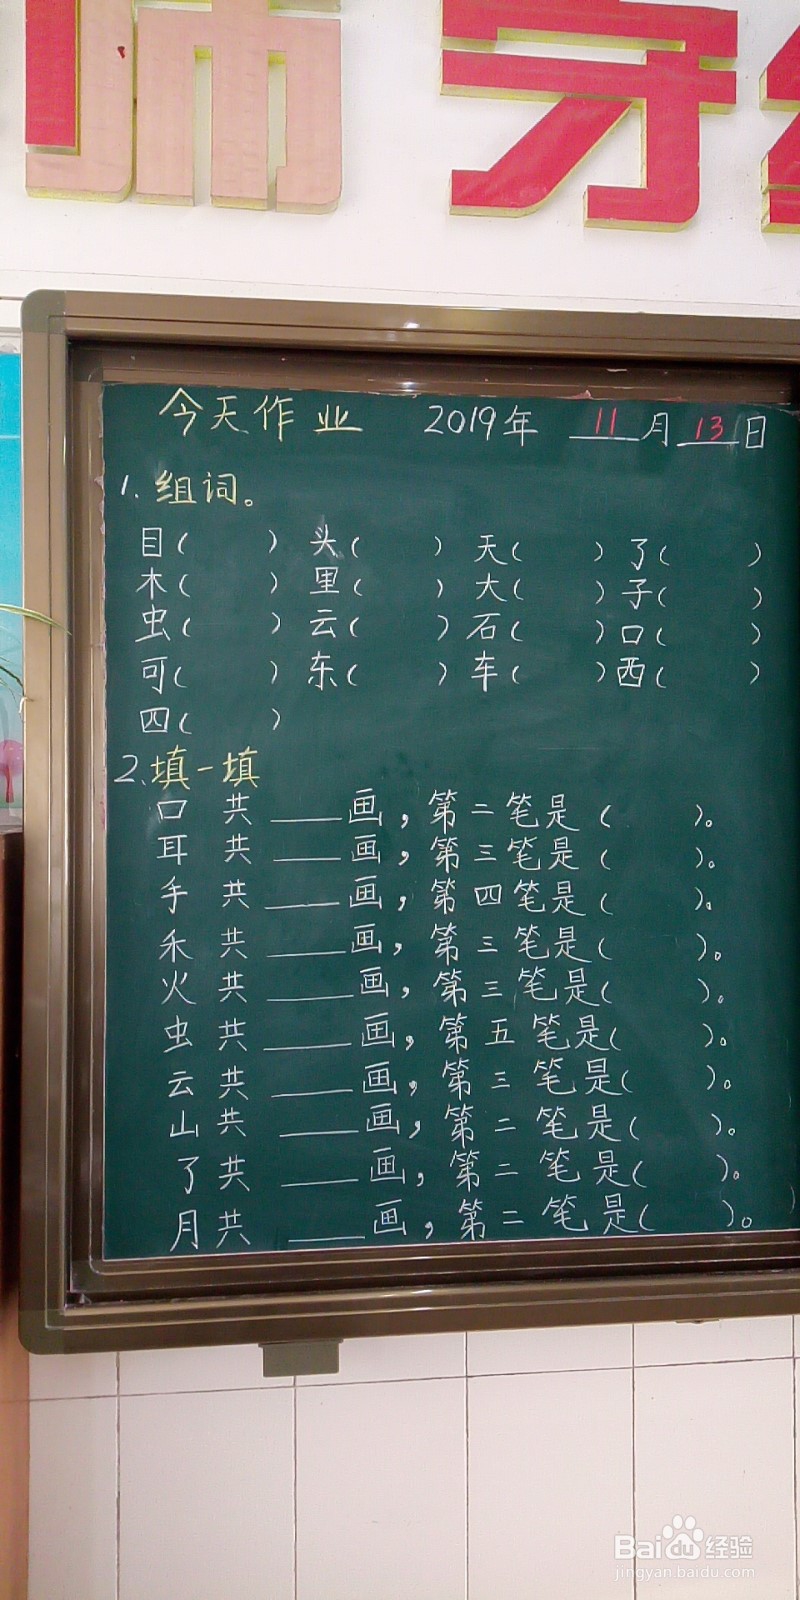 师 牙
今天作业 2019年 11月13日
1.组词。
目( ) 头( ) 天( ) 了( )
木( ) 里( ) 大( ) 子( )
虫( ) 云( ) 石( ) 口( )
可( ) 东( ) 车( ) 西( )
四( )
2.填一填
口 共____画，第二笔是( )。
耳 共____画，第三笔是( )。
手 共____画，第四笔是( )。
禾 共____画，第三笔是( )。
火 共____画，第三笔是( )。
虫 共____画，第五笔是( )。
云 共____画，第三笔是( )。
山 共____画，第二笔是( )。
了 共____画，第二笔是( )。
月 共____画，第二笔是( )。
Baidu经验
jingyan.baidu.com